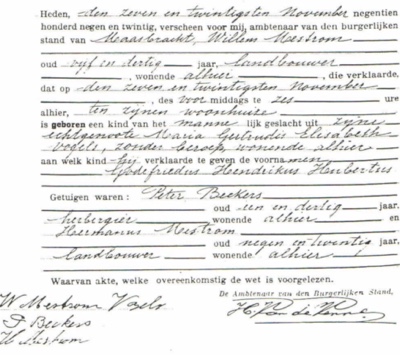 Heden, den zeven en twintigsten November negentien
honderd negen en twintig, verscheen voor mij, ambtenaar van den burgerlijken
stand van Maasbracht, Willem Mestrom
oud vijf en dertig jaar, landbouwer
, wonende alhier, die verklaarde,
dat op den zeven en twintigsten November
, des voor middags te zes ure
alhier, ten zijnen woonhuize
is geboren een kind van het mannelijk geslacht uit zijne
echtgenoote Maria Gertrudis Elisabeth
Vogels, zonder beroep, wonende alhier
aan welk kind hij verklaarde te geven de voornamen
Godefridus Hendrikus Hubertus
Getuigen waren: Peter Beckers
oud een en dertig jaar,
herbergier wonende alhier en
Hermanus Mestrom
oud negen en twintig jaar
landbouwer wonende alhier
Waarvan akte, welke overeenkomstig de wet is voorgelezen.
De Ambtenaar van den Burgerlijken Stand,
W Mestrom
P Beckers
H Mestrom